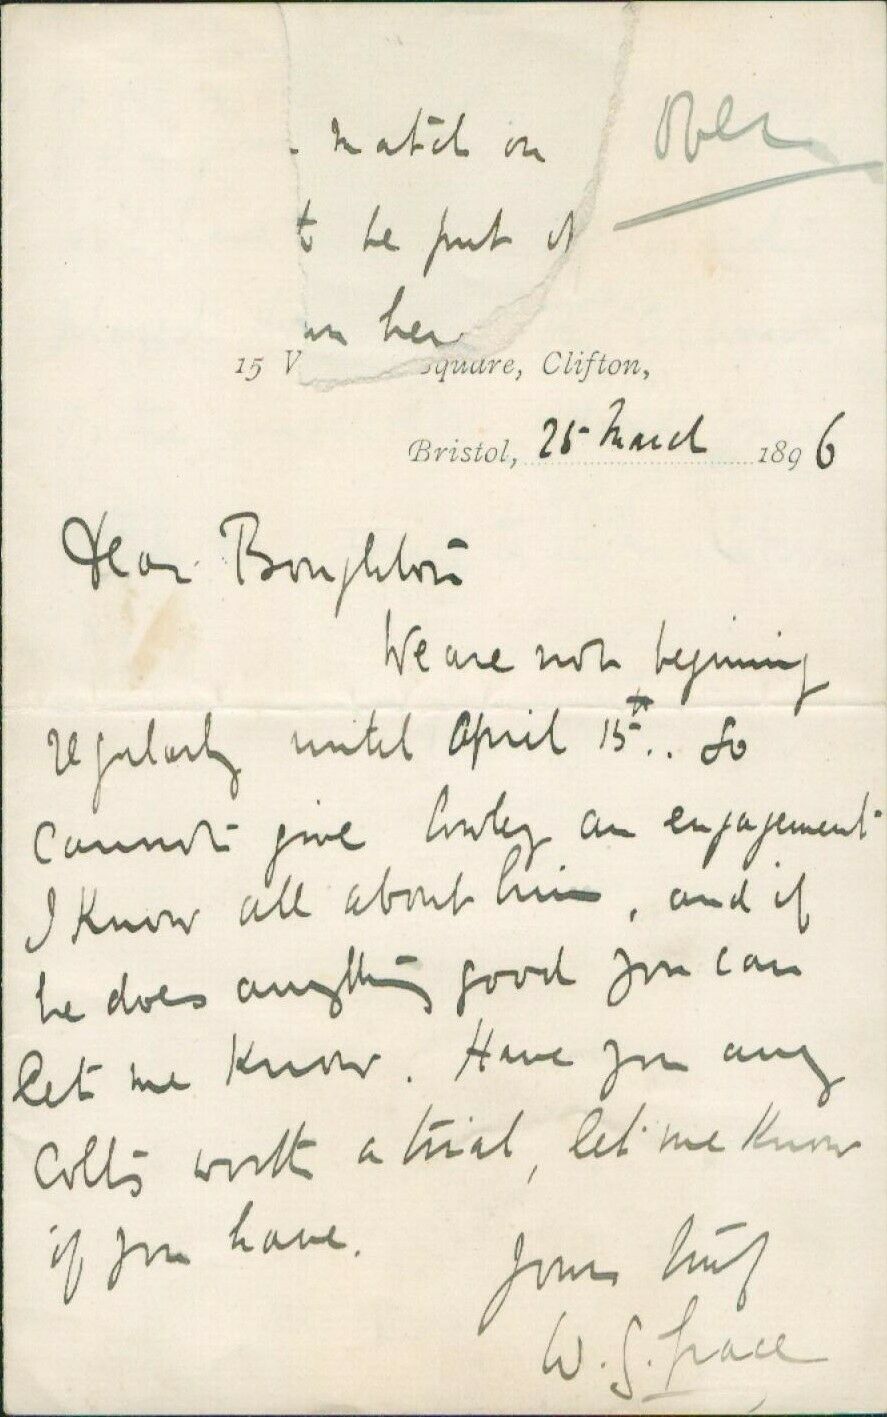 match on
Over
to be put of
her
15 V square, Clifton,
Bristol, 25 March 1896
Dear Boughton
We are not beginning
regularly until April 15th.. So
cannot give an engagement
I know all about him, and if
he does anything good you can
let me know. Have you any
Colts worth a trial, let me know
if you have.
Yours truly
W. G. Grace